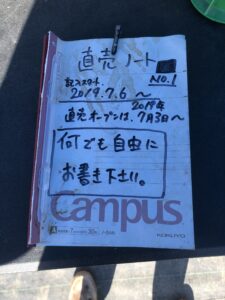 直売ノート
NO.1
記入スタート
2019.7.6～
2019年
直売オープンは、7月3日～
何でも自由に
お書き下さい。
Campus
KOKUYO